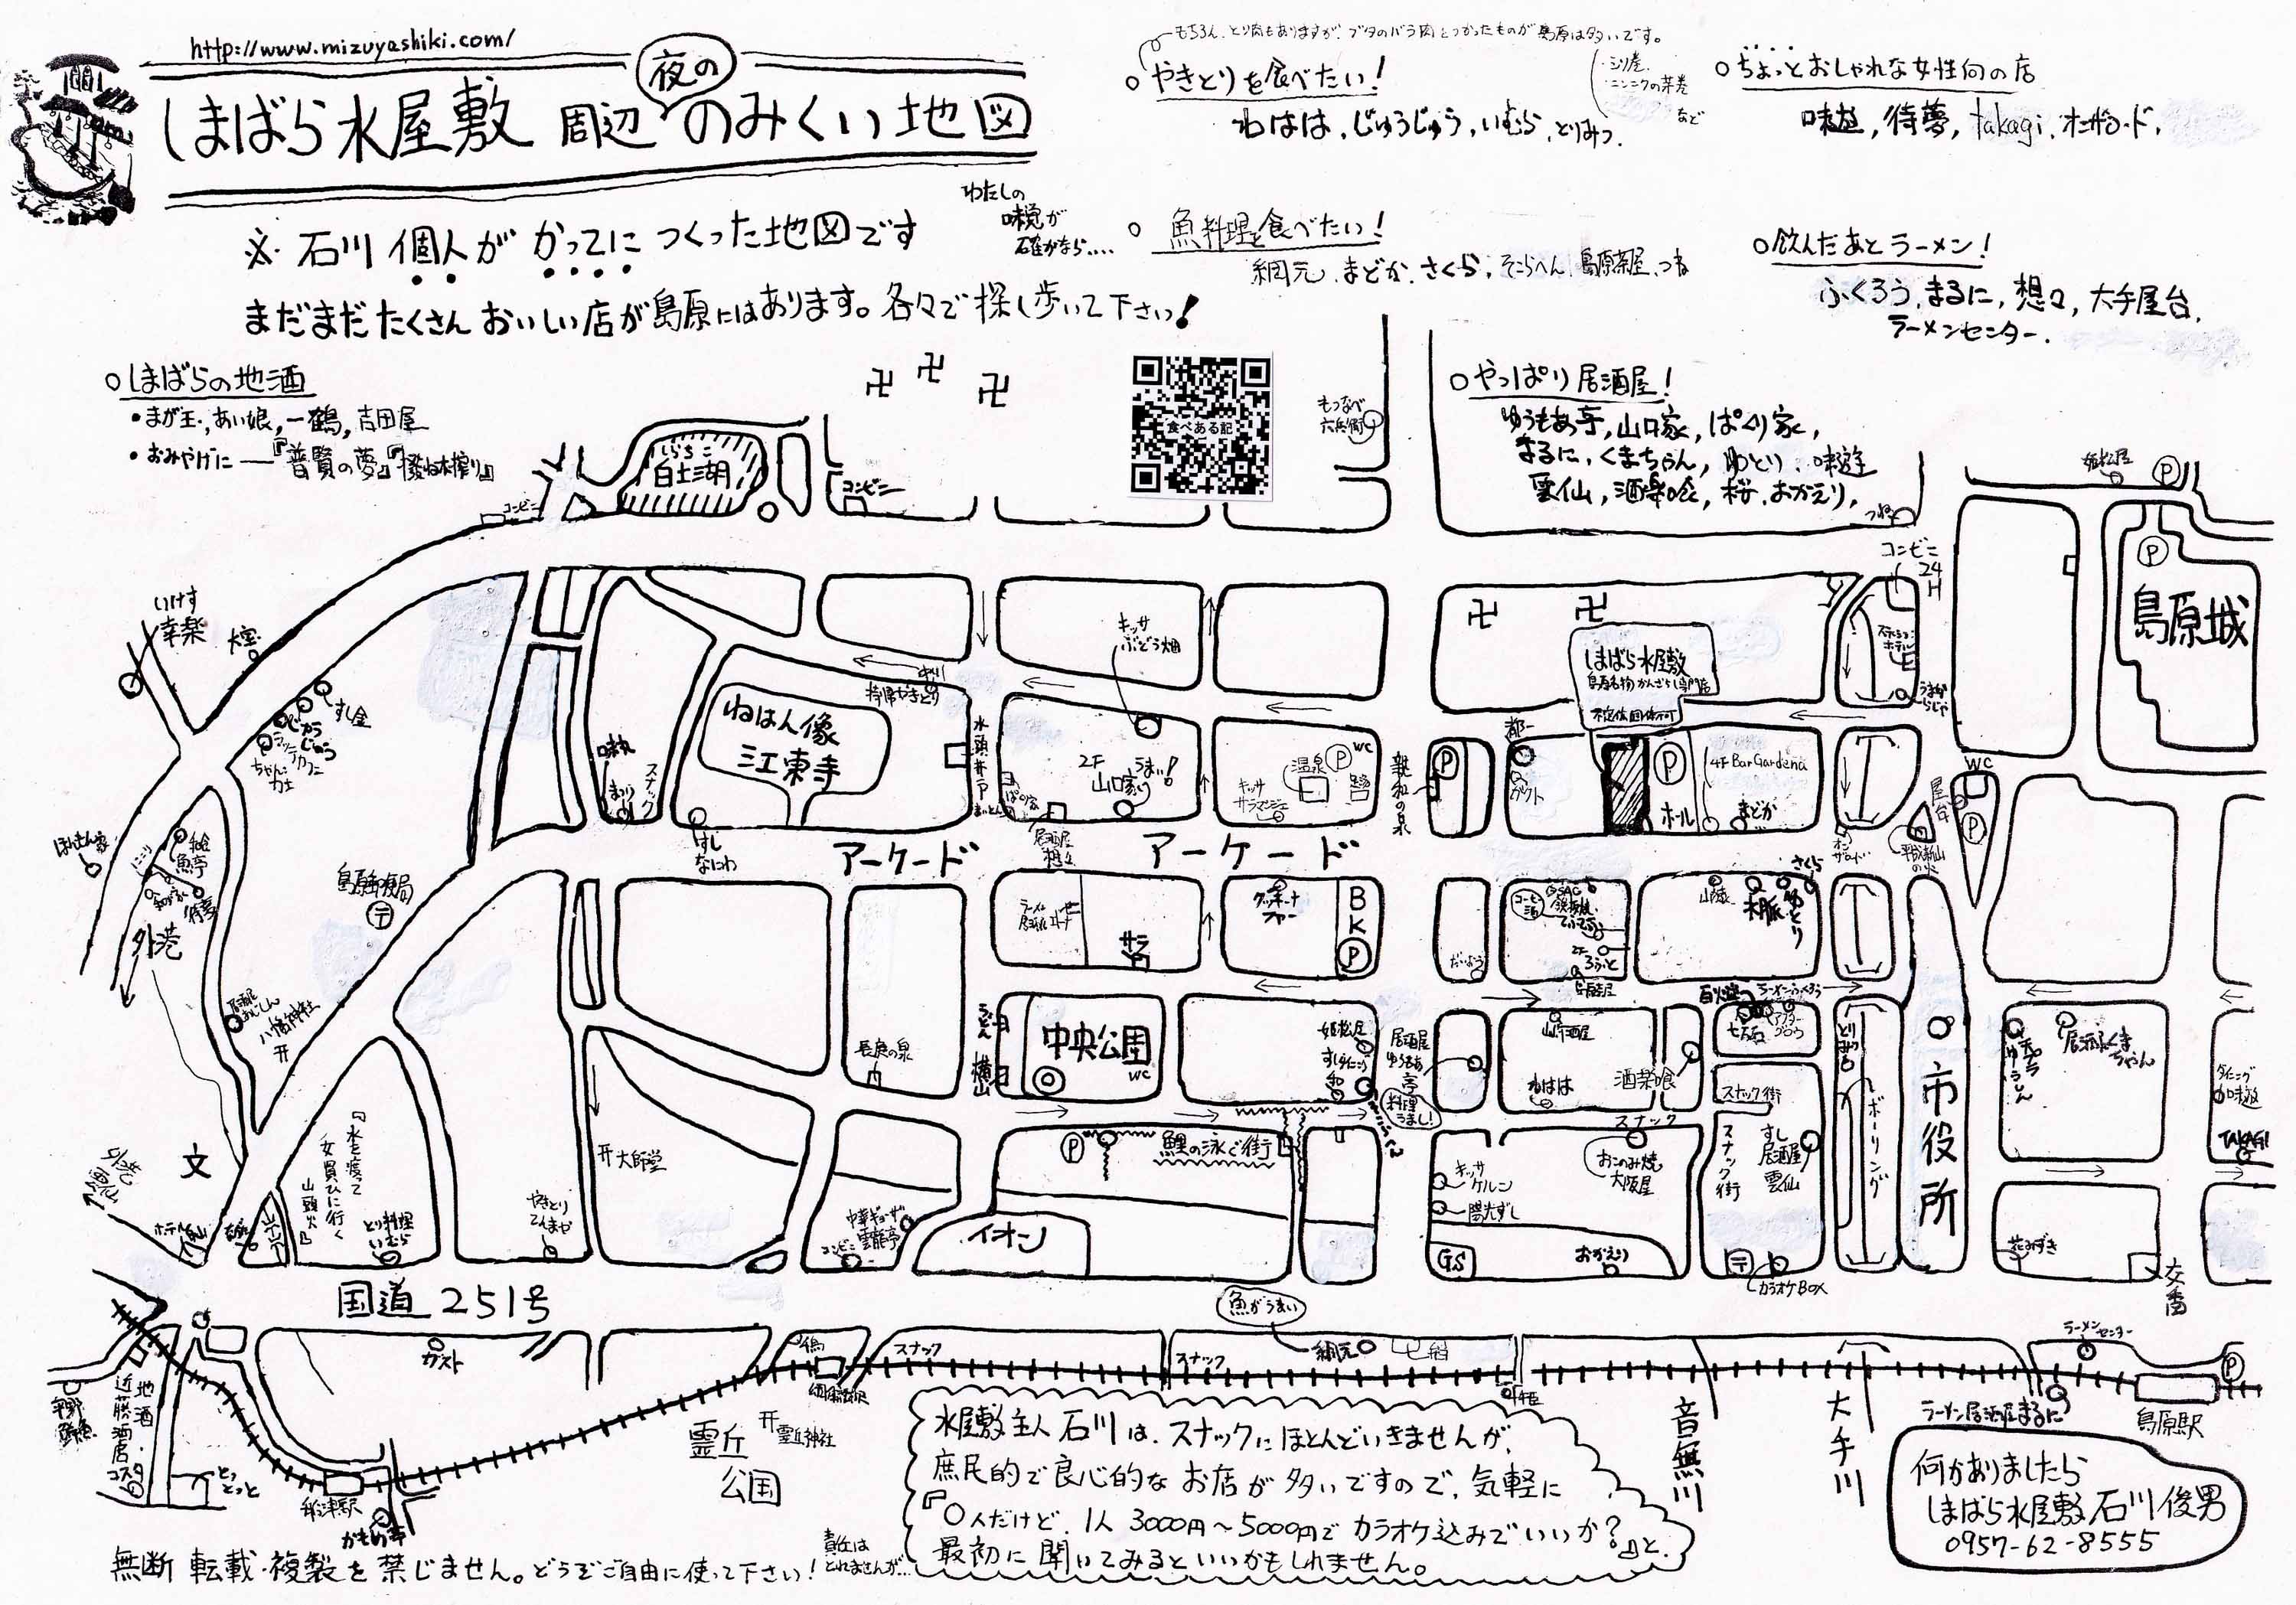 http://www.mizuyashiki.com/
しまばら水屋敷 周辺 夜の のみくい地図
※石川個人がかってにつくった地図です
わたしの
味覚が
確かなら....
まだまだたくさんおいしい店が島原にはあります。各々で探し歩いて下さい!
もちろん、とり肉もありますが、ブタのバラ肉をつかったものが島原は多いです。
○やきとりを食べたい!
・ニンニクの芽巻
など
わはは,じゅうじゅう,いむら,とりみつ.
○ちょっとおしゃれな女性向の店
味遊,待夢,takagi.オンザロード.
○魚料理を食べたい!
網元.まどか.さくら,そこらへん,島原茶屋.つね
○飲んだあとラーメン!
ふくろう.まるに,想々,大手屋台.
ラーメンセンター.
○しまばらの地酒
・まが玉,あい娘,一鶴,吉田屋
・おみやげに―『普賢の夢』『撥ね木搾り』
○やっぱり居酒屋!
ゆうもあ亭,山口家,ぱくり家,
まるに,くまちゃん,ゆとり,味遊
雲仙,酒楽喰,桜.おかえり.
食べある記
もつなべ
六兵衛
しらちこ
白土湖
コンビニ
コンビニ
姫松屋
P
つね
コンビニ
24
H
P
島原城
いけす
幸楽
大宝
すし金
じゅうじゅう
ちゃんこ
力士
キッサ
ぶどう畑
中川
持帰やきとり
しまばら水屋敷
島原名物かんざらし専門店
不定休団体不可
ねはん像
江東寺
味丸
まつり
スナック
水頭井戸
2F
山口家
うまい!
温泉
P
WC
キッサ
サラマンジェ
親和の泉
P
都
ガウト
P
ホール
4F Bar Gardena
まどか
WC
P
屋台
すし
なにわ
アーケード
アーケード
居酒屋
想々
ほんさん家
魚亭
待夢
外港
島原郵便局
〒
サラ
B
K
P
コーヒー
さくら
ゆとり
水脈
八幡神社
長庚の泉
うどん
横山
中央公園
WC
姫松屋
居酒屋
ゆうもあ
亭
料理
うまし!
山崎酒屋
わはは
酒楽喰
七万石
ラーメンふくろう
スナック街
とりみつ
ボーリング
市役所
天ぷら
ゆうらん
居酒屋くま
ちゃん
ダイニング
味遊
TAKAGI
P
鯉の泳ぐ街
スナック
おこのみ焼
大阪屋
スナック街
すし
居酒屋
雲仙
キッサ
ケルン
陽光ずし
GS
おかえり
〒
カラオケBOX
花みずき
交番
文
外港
雲仙
『水を渡って
女買ひに行く
山頭火』
とり料理
いむら
やきとり
てんまや
大師堂
中華ギョーザ
雲龍亭
コンビニ
イオン
国道251号
ガスト
スナック
スナック
魚がうまい
網元
七福
ラーメンセンター
P
島原駅
ラーメン居酒屋まるに
地酒
近藤酒店
とっとっと
かもめ亭
霊丘神社
霊丘
公園
音無川
大手川
水屋敷主人石川は、スナックにほとんどいきませんが、
庶民的で良心的なお店が多いですので、気軽に
『○人だけど、1人3000円~5000円でカラオケ込みでいいか?』と.
最初に聞いてみるといいかもしれません。
何かありましたら
しまばら水屋敷 石川俊男
0957-62-8555
無断転載・複製を禁じません。どうぞご自由に使って下さい!
責任は
とれませんが...